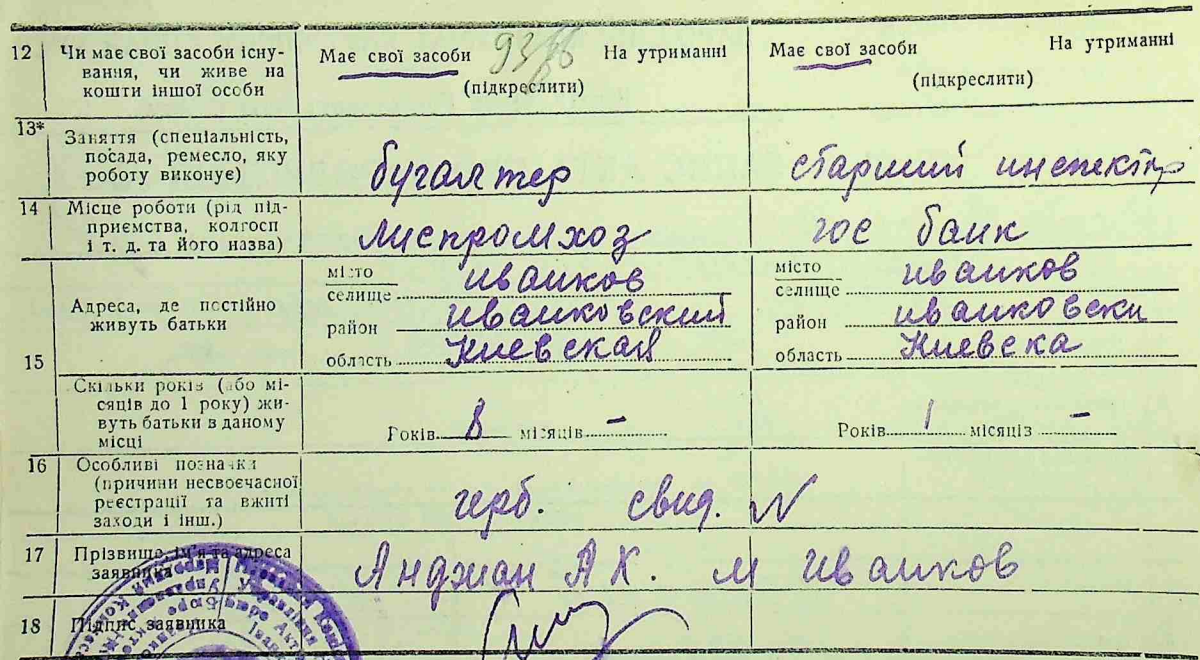 12 Чи має свої засоби існу-
вання, чи живе на
кошти іншої особи
Має свої засоби На утриманні
(підкреслити)
Має свої засоби На утриманні
(підкреслити)
13* Заняття (спеціальність,
посада, ремесло, яку
роботу виконує)
бугалтер
старший инспектор
14 Місце роботи (рід під-
приємства, колгосп
і т. д. та його назва)
Лиспромхоз
гос банк
15 Адреса, де постійно
живуть батьки
місто
селище иванков
район иванковский
область Киевская
місто
селище иванков
район иванковски
область Киевска
Скільки років (або мі-
сяців до 1 року) жи-
вуть батьки в даному
місці
Років 8 місяців –
Років 1 місяців –
16 Особливі позначки
(причини несвоєчасної
реєстрації та вжиті
заходи і інш.)
герб. свид. N
17 Прізвище, ім'я та адреса
заявника
Анджиан А Х. м Иванков
18 Підпис заявника